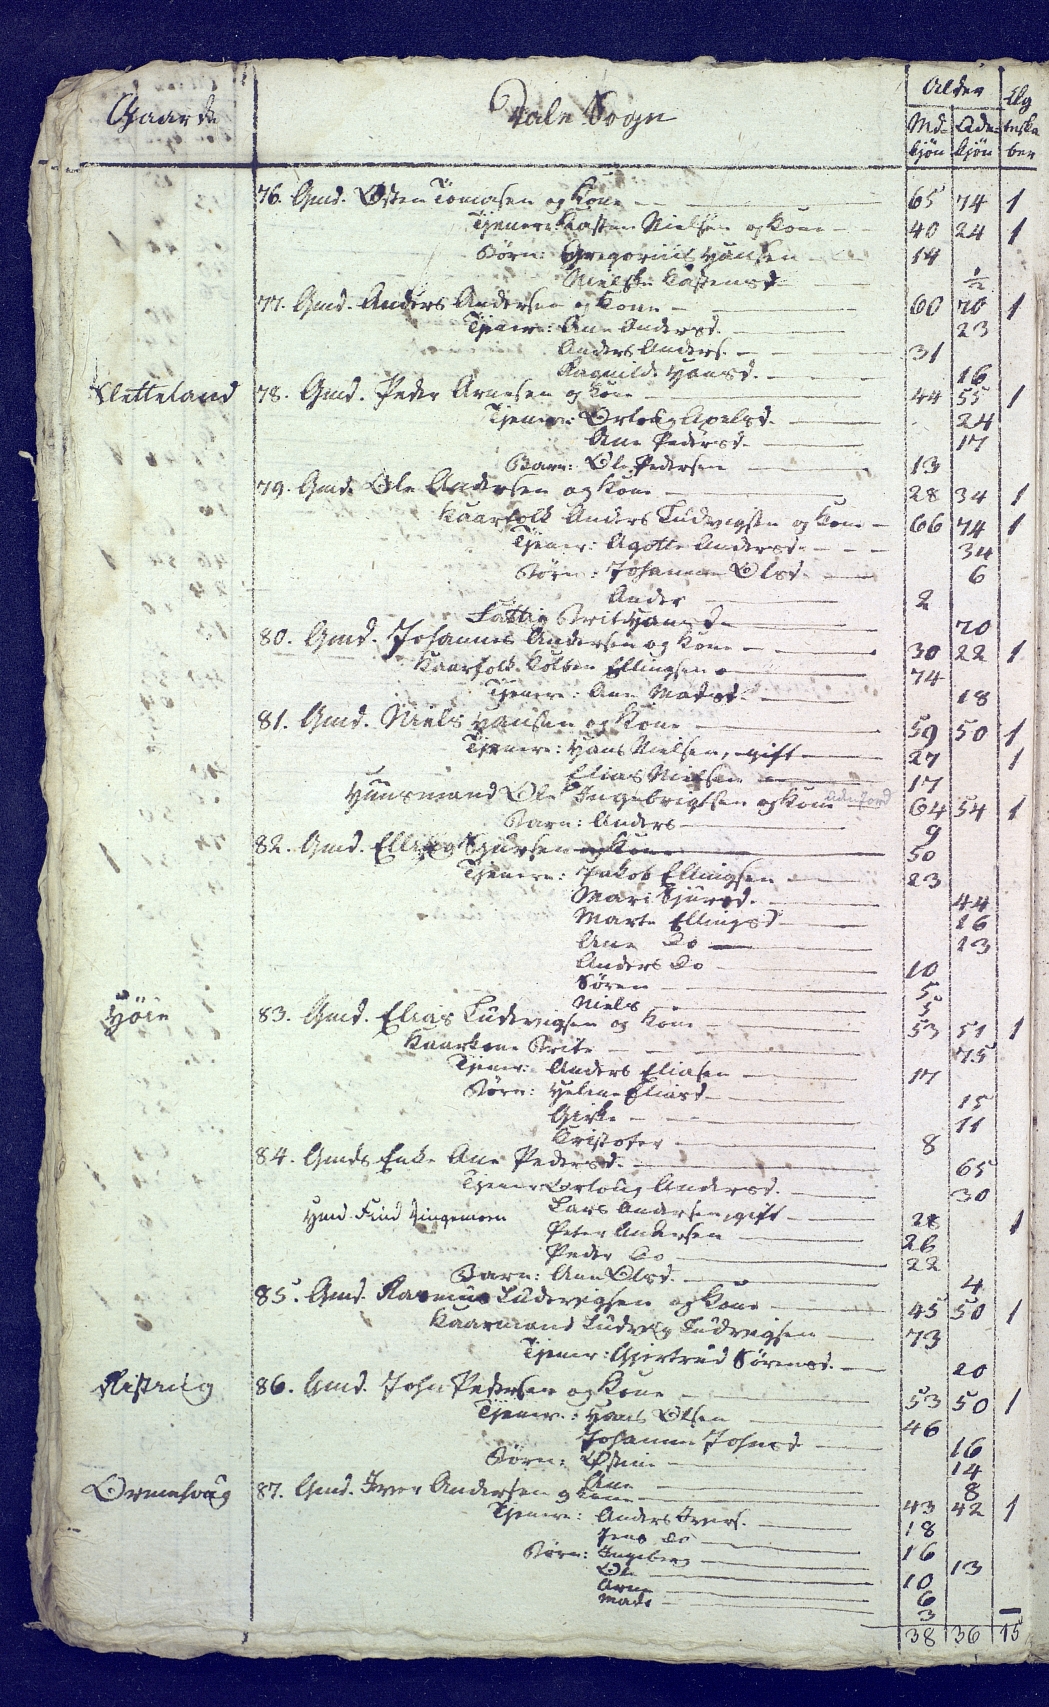 Gaarde Dale Sogn Alder Ægteskaber
Mdkjøn Qdekjøn
76. Gmd. Østen Tomasen og Kone 65 74 1
Tjenere: Kasten Nielsen og Kone 40 24 1
Børn: Gregorius Hansen 14
Kastensd. 1/2
77. Gmd. Anders Andersen og Kone 60 70 1
Tjenere: Ane Andersd. 23
Anders Anders. 31
Ragnilde Hansd. 16
Sletteland 78. Gmd. Peder Arnesen og Kone 44 55 1
Tjenere: Ortolig Apelsd. 24
Ane Pedersd. 17
Barn: Ole Pedersen 13
79. Gmd. Ole Andersen og Kone 28 34 1
Kaarfolk Anders Ludvigsen og Kone 66 74 1
Tjener: Agotte Andersd. 34
Børn: Johanne Olsd. 6
Ander 2
Fattig Brit Hansd. 70
80. Gmd. Johannes Andersen og Kone 30 22 1
Kaarfolk Ellingsen 74
Tjenere: Ane Madsd. 18
81. Gmd. Niels Hansen og Kone 59 50 1
Tjenere: Hans Nielsen, gift 27 1
Elias Nielsen 17
Huusmand Ole Ingebrigtsen og Kone 64 54 1
Barn: Anders 9
82. Gmd. Elling Sjursen og Kone 50
Tjenere: Jakob Ellingsen 23
Mari Sjursd. 44
Marte Ellingsd. 16
Ane Do 13
Anders Do 10
Søren 5
Niels 5
Høie 83. Gmd. Elias Ludvigsen og Kone 53 51 1
Kaarkone Brite 75
Tjener: Anders Eliasen 17
Børn: Helene Eliasd. 15
11
Kristofer 8
84. Gmds Enke Ane Pedersd. 65
Tjenere Ortolig Andersd. 30
Hmd. Find Lars Andersen, gift 28 1
Peter Andersen 26
Peder Do 22
Barn: Ane Olsd. 4
85. Gmd. Rasmus Ludvigsen og Kone 45 50 1
Kaarmand Ludvig Ludvigsen 73
Tjener: Gjertrud Sørensd. 20
86. Gmd. John Pedersen og Kone 53 50 1
Tjenere: Hans Olsen 46
Johanne Johnsd. 16
Børn: 14
Ane 8
87. Gmd. Iver Andersen og Kone 43 42 1
Tjenere: Anders Ivers. 18
Jens Do 16
Børn: Ingeborg 13
Ole 10
Arne 6
Mads 3
38 36 15